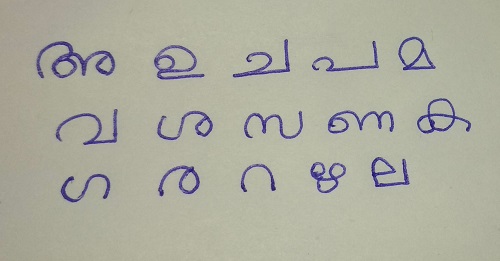 അ ഉ ച പ മ
വ ശ സ ണ ക
ഗ ര റ ഴ ല